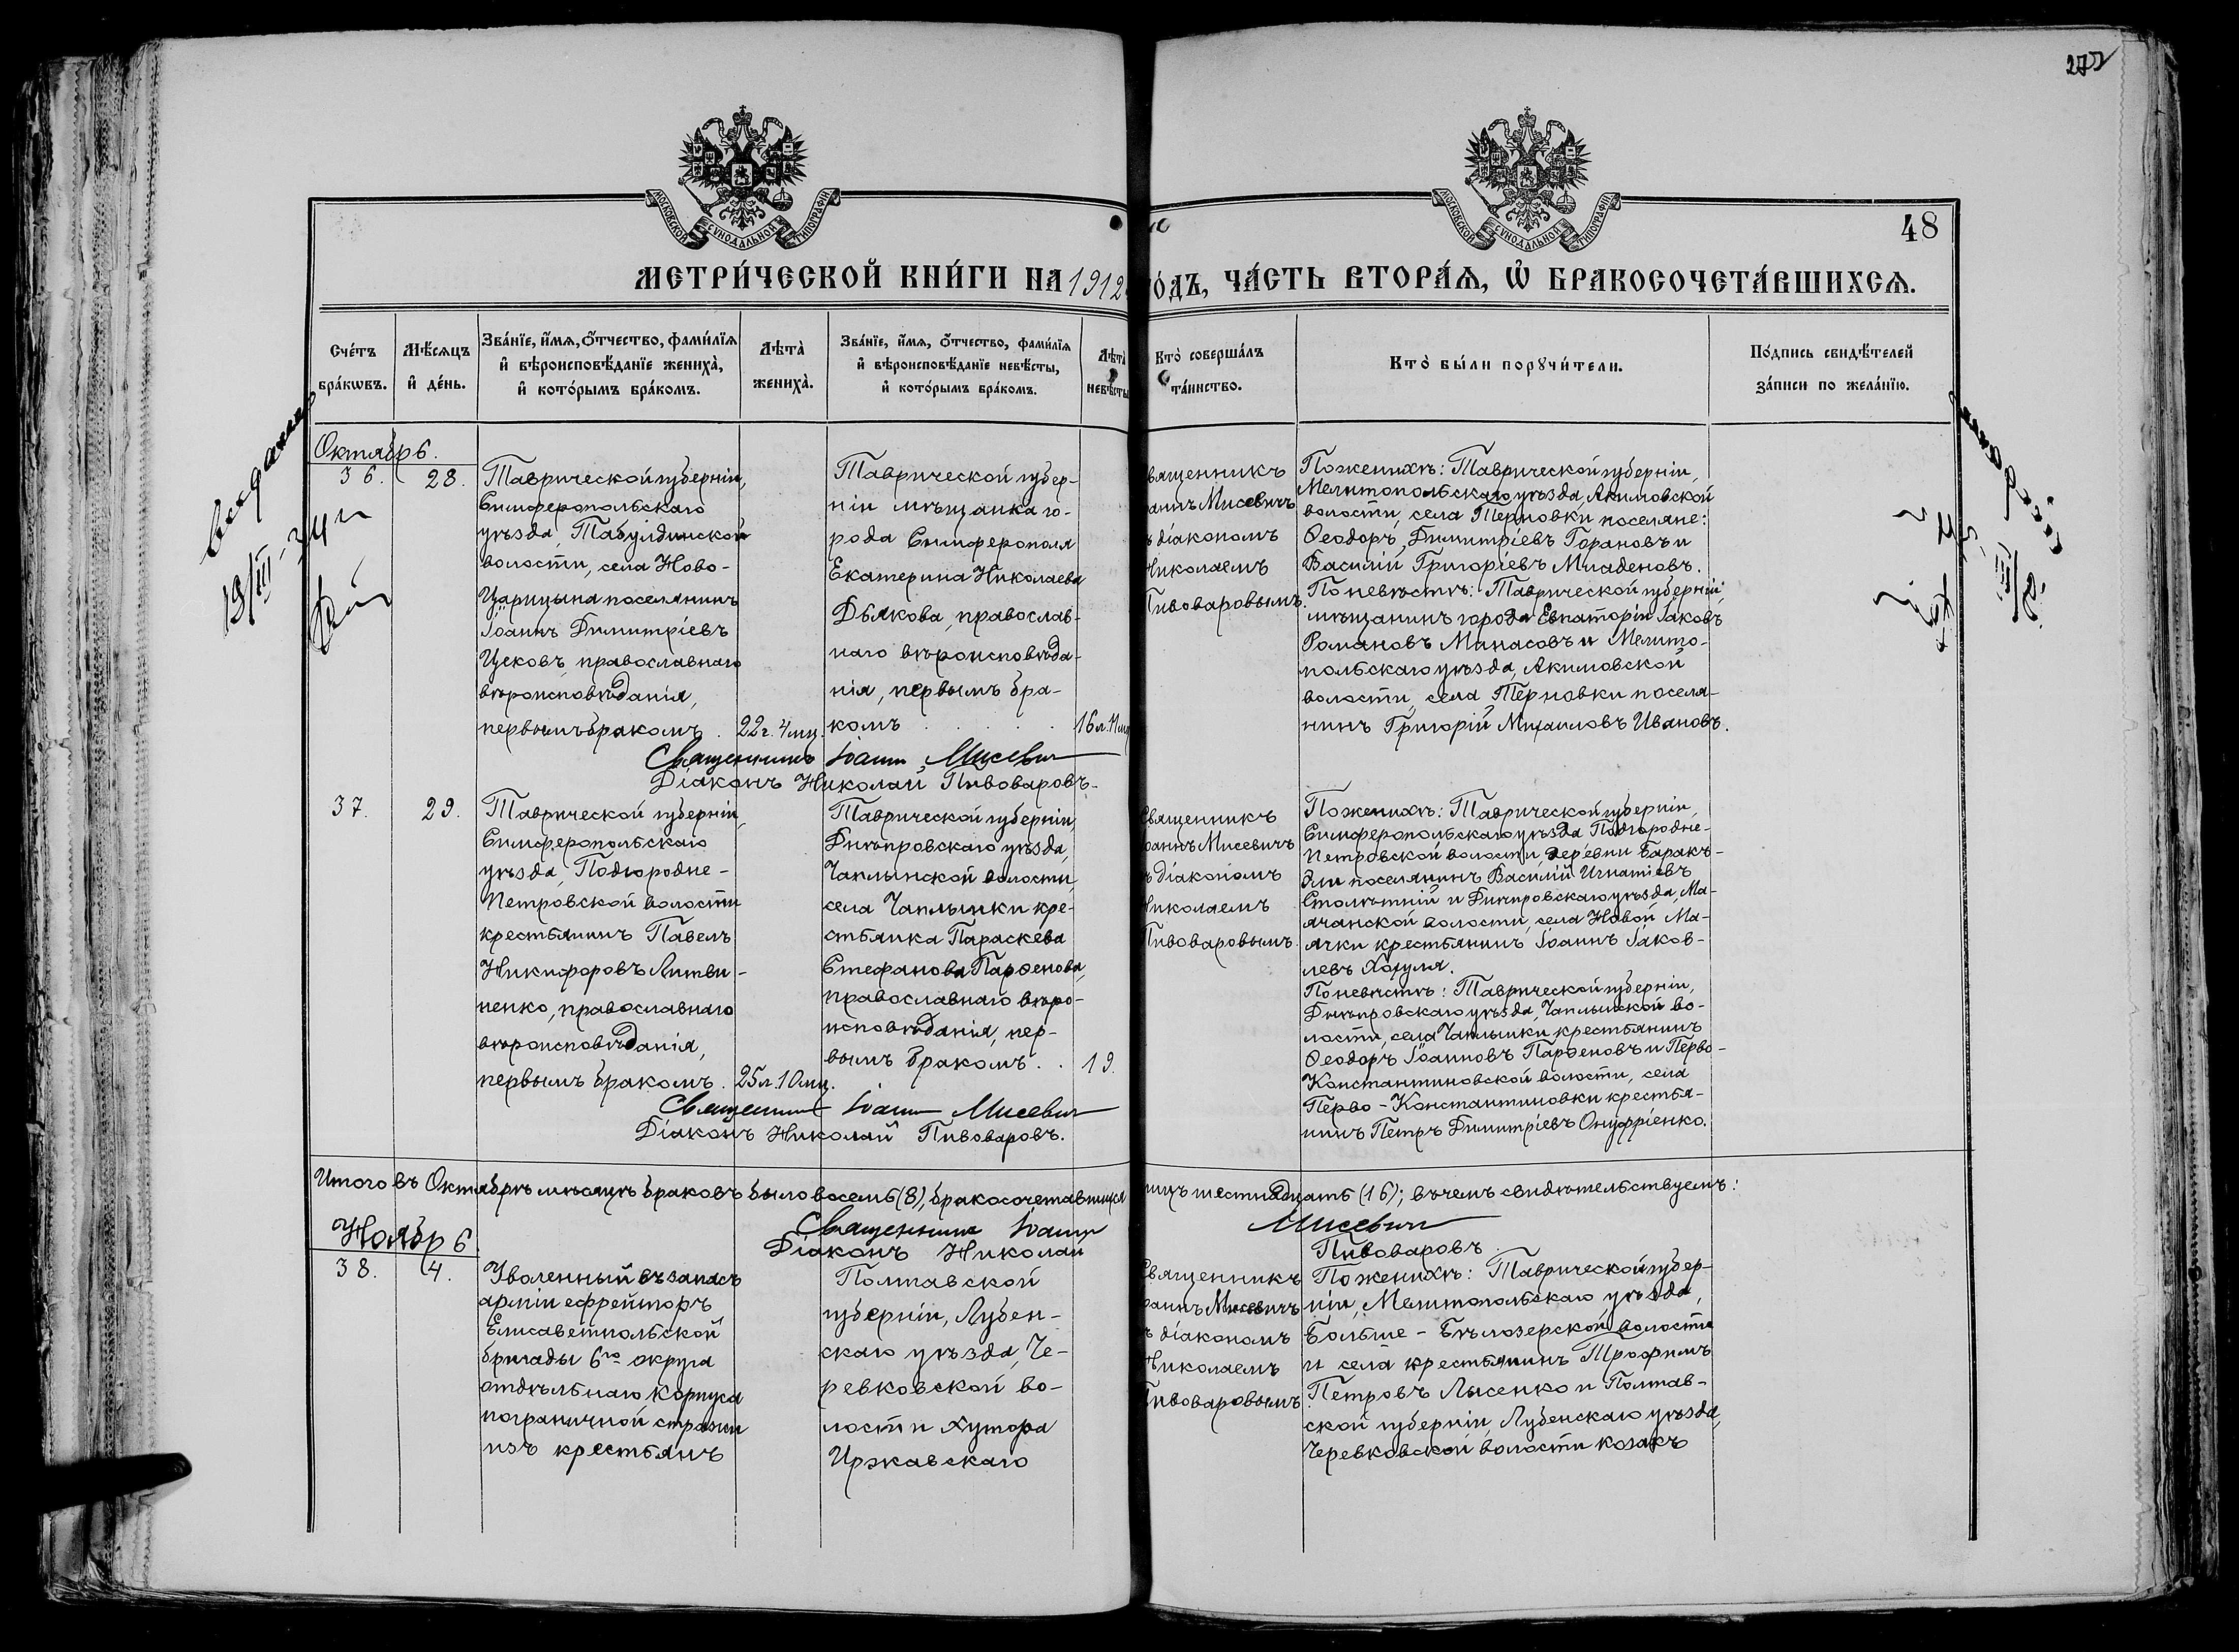 272
МОСКОВСКОЙ СѴНОДАЛЬНОЙ ТИПОГРАФІИ
МОСКОВСКОЙ СѴНОДАЛЬНОЙ ТИПОГРАФІИ
48
МЕТРИ́ЧЕСКОЙ КНИ́ГИ НА 1912
О́ДЪ, ЧА́СТЬ ВТОРА́Ѧ, Ѽ БРАКОСОЧЕТА́ВШИХСѦ.
Сче́тъ бра́кѡвъ.
Мѣ́сяцъ и҆ де́нь.
Зва́нїе, и҆́мя, о҆́тчество, фами́лїя
и҆ вѣроисповѣ́данїе жениха̀,
и҆ кото́рымъ бра́комъ.
Лѣта̀ жениха̀.
Зва́нїе, и҆́мя, о҆́тчество, фами́лїя
и҆ вѣроисповѣ́данїе невѣ́сты,
и҆ кото́рымъ бра́комъ.
Лѣта̀ невѣ́сты
Кто̀ соверша́лъ
та́инство.
Кто̀ бы́ли порꙋчи́тели.
По́дпись свидѣ́телей
за́писи по жела́нїю.
Октябрь.
36.
28.
Таврической губерніи,
Симферопольскаго
уѣзда, Табулдинской
волости, села Ново-
Царицына поселянинъ
Іоаннъ Димитріевъ
Цековъ, православнаго
вѣроисповѣданія,
первымъ бракомъ.
22г. 4мц.
Таврической губер-
ніи мѣщанка го-
рода Симферополя
Екатерина Николаева
Дьякова, православ-
наго вѣроисповѣда-
нія, первымъ бра-
комъ
16л. 11мц
вященникъ
аннъ Мисевичъ
ъ діакономъ
Николаемъ
Пивоваровымъ.
По женихѣ: Таврической губерніи,
Мелитопольскаго уѣзда, Акимовской
волости, села Терновки поселяне:
Ѳеодоръ Димитріевъ Горановъ и
Василій Григоріевъ Младеновъ.
По невѣстѣ: Таврической губерніи,
мѣщанинъ города Евпаторіи Іаковъ
Романовъ Манасовъ и Мелито-
польскаго уѣзда, Акимовской
волости, села Терновки поселя-
нинъ Григорій Михаиловъ Ивановъ.
Священникъ Іоаннъ Мисевич
Діаконъ Николай Пивоваровъ.
37.
29.
Таврической губерніи,
Симферопольскаго
уѣзда, Подгородне-
Петровской волости
крестьянинъ Павелъ
Никифоровъ Литви-
ненко, православнаго
вѣроисповѣданія,
первымъ бракомъ.
25л. 10мц.
Таврической губерніи,
Днѣпровскаго уѣзда,
Чаплынской волости,
села Чаплынки кре-
стьянка Параскева
Стефанова Парѳенова,
православнаго вѣро-
исповѣданія, пер-
вымъ бракомъ.
19.
Священникъ
оаннъ Мисевичъ
ъ діакономъ
Николаемъ
Пивоваровымъ.
По женихѣ: Таврической губерніи,
Симферопольскаго уѣзда Подгородне-
Петровской волости, деревни Баракъ-
Эли поселянинъ Василій Игнатіевъ
Столѣтній и Днѣпровскаго уѣзда, Ма-
ячанской волости, села Новой Ма-
ячки крестьянинъ Іоаннъ Іаков-
левъ Хохуля.
По невѣстѣ: Таврической губерніи,
Днѣпровскаго уѣзда, Чаплынской во-
лости, села Чаплынки крестьянинъ
Ѳеодоръ Іоанновъ Парѳеновъ и Перво-
Константиновской волости, села
Перво-Константиновки крестья-
нинъ Петръ Димитріевъ Онуфріенко.
Священникъ Іоаннъ Мисевич
Діаконъ Николай Пивоваровъ.
Итого въ Октябрѣ мѣсяцѣ браковъ было восемь (8), бракосочетавшихся
лицъ шестнадцать (16); въ чемъ свидѣтельствуемъ:
Священникъ Іоаннъ Мисевич
Діаконъ Николай Пивоваровъ
Ноябрь
38.
4.
Уволенный въ запасъ
арміи ефрейторъ
Елисаветпольской
бригады 6го округа
отдѣльнаго корпуса
пограничной стражи
изъ крестьянъ
Полтавской
губерніи, Лубен-
скаго уѣзда, Че-
ревковской во-
лости хутора
Иржавскаго
Священникъ
оаннъ Мисевичъ
ъ діакономъ
Николаемъ
Пивоваровымъ.
По женихѣ: Таврической губер-
ніи, Мелитопольскаго уѣзда,
Больше-Бѣлозерской волости
и села крестьянинъ Трофимъ
Петровъ Лысенко и Полтав-
ской губерніи, Лубенскаго уѣзда,
Черевковской волости козакъ